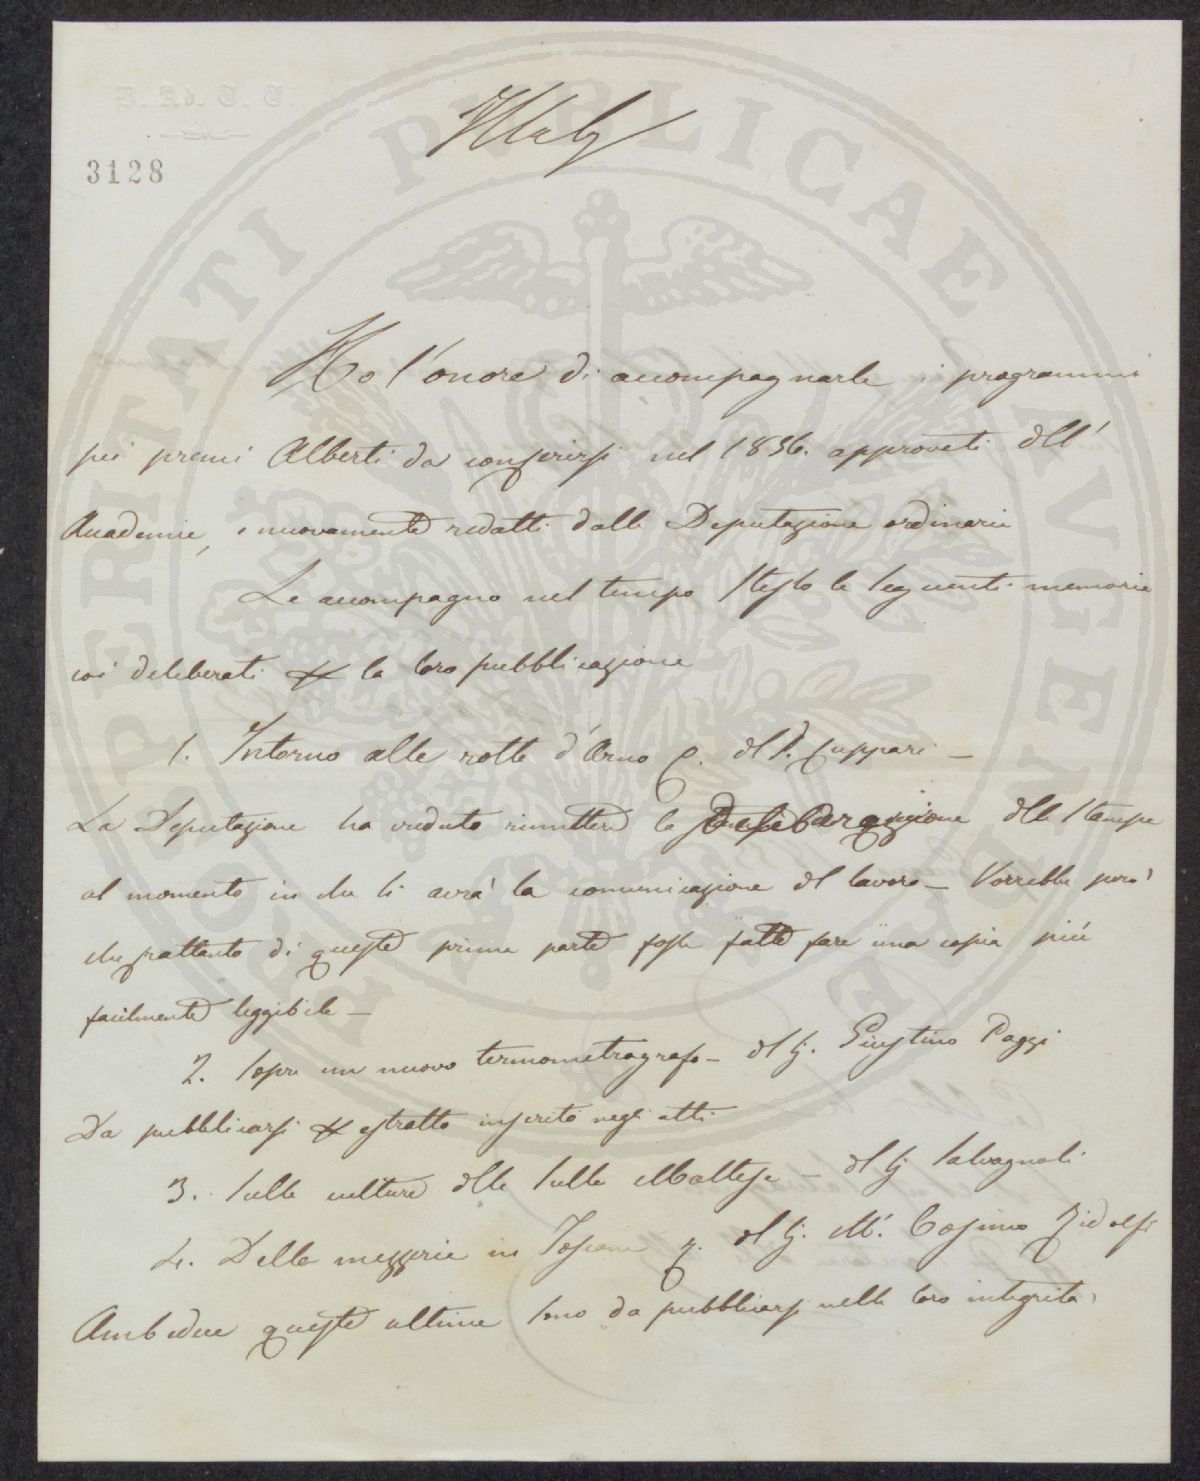 3128
Ho l'onore di accompagnarle i programmi
pei premi Alberti da conferirsi nel 1856. approvati dall'
Accademia, e nuovamente redatti dalla Deputazione ordinaria
Le accompagno nel tempo stesso le seguenti memorie
coi deliberati per la loro pubblicazione
1. Intorno alle rotte d'Arno del P. Cuppari –
La Deputazione ha creduto rimettere la della stampa
al momento in che si avrà la comunicazione del lavoro – Vorrebbe però
che frattanto di questa prima parte fosse fatta fare una copia più
facilmente leggibile –
2. Sopra un nuovo termometrografo – del Sg. Giustino Paggi
Da pubblicarsi per estratto inserito negli atti
3. Sulla cultura della Sulla Maltese – del Sg Salvagnoli
4. Della mezzeria in Toscana del Sg. M. Cosimo Ridolfi
Ambedue queste ultime sono da pubblicarsi nella loro integrità,